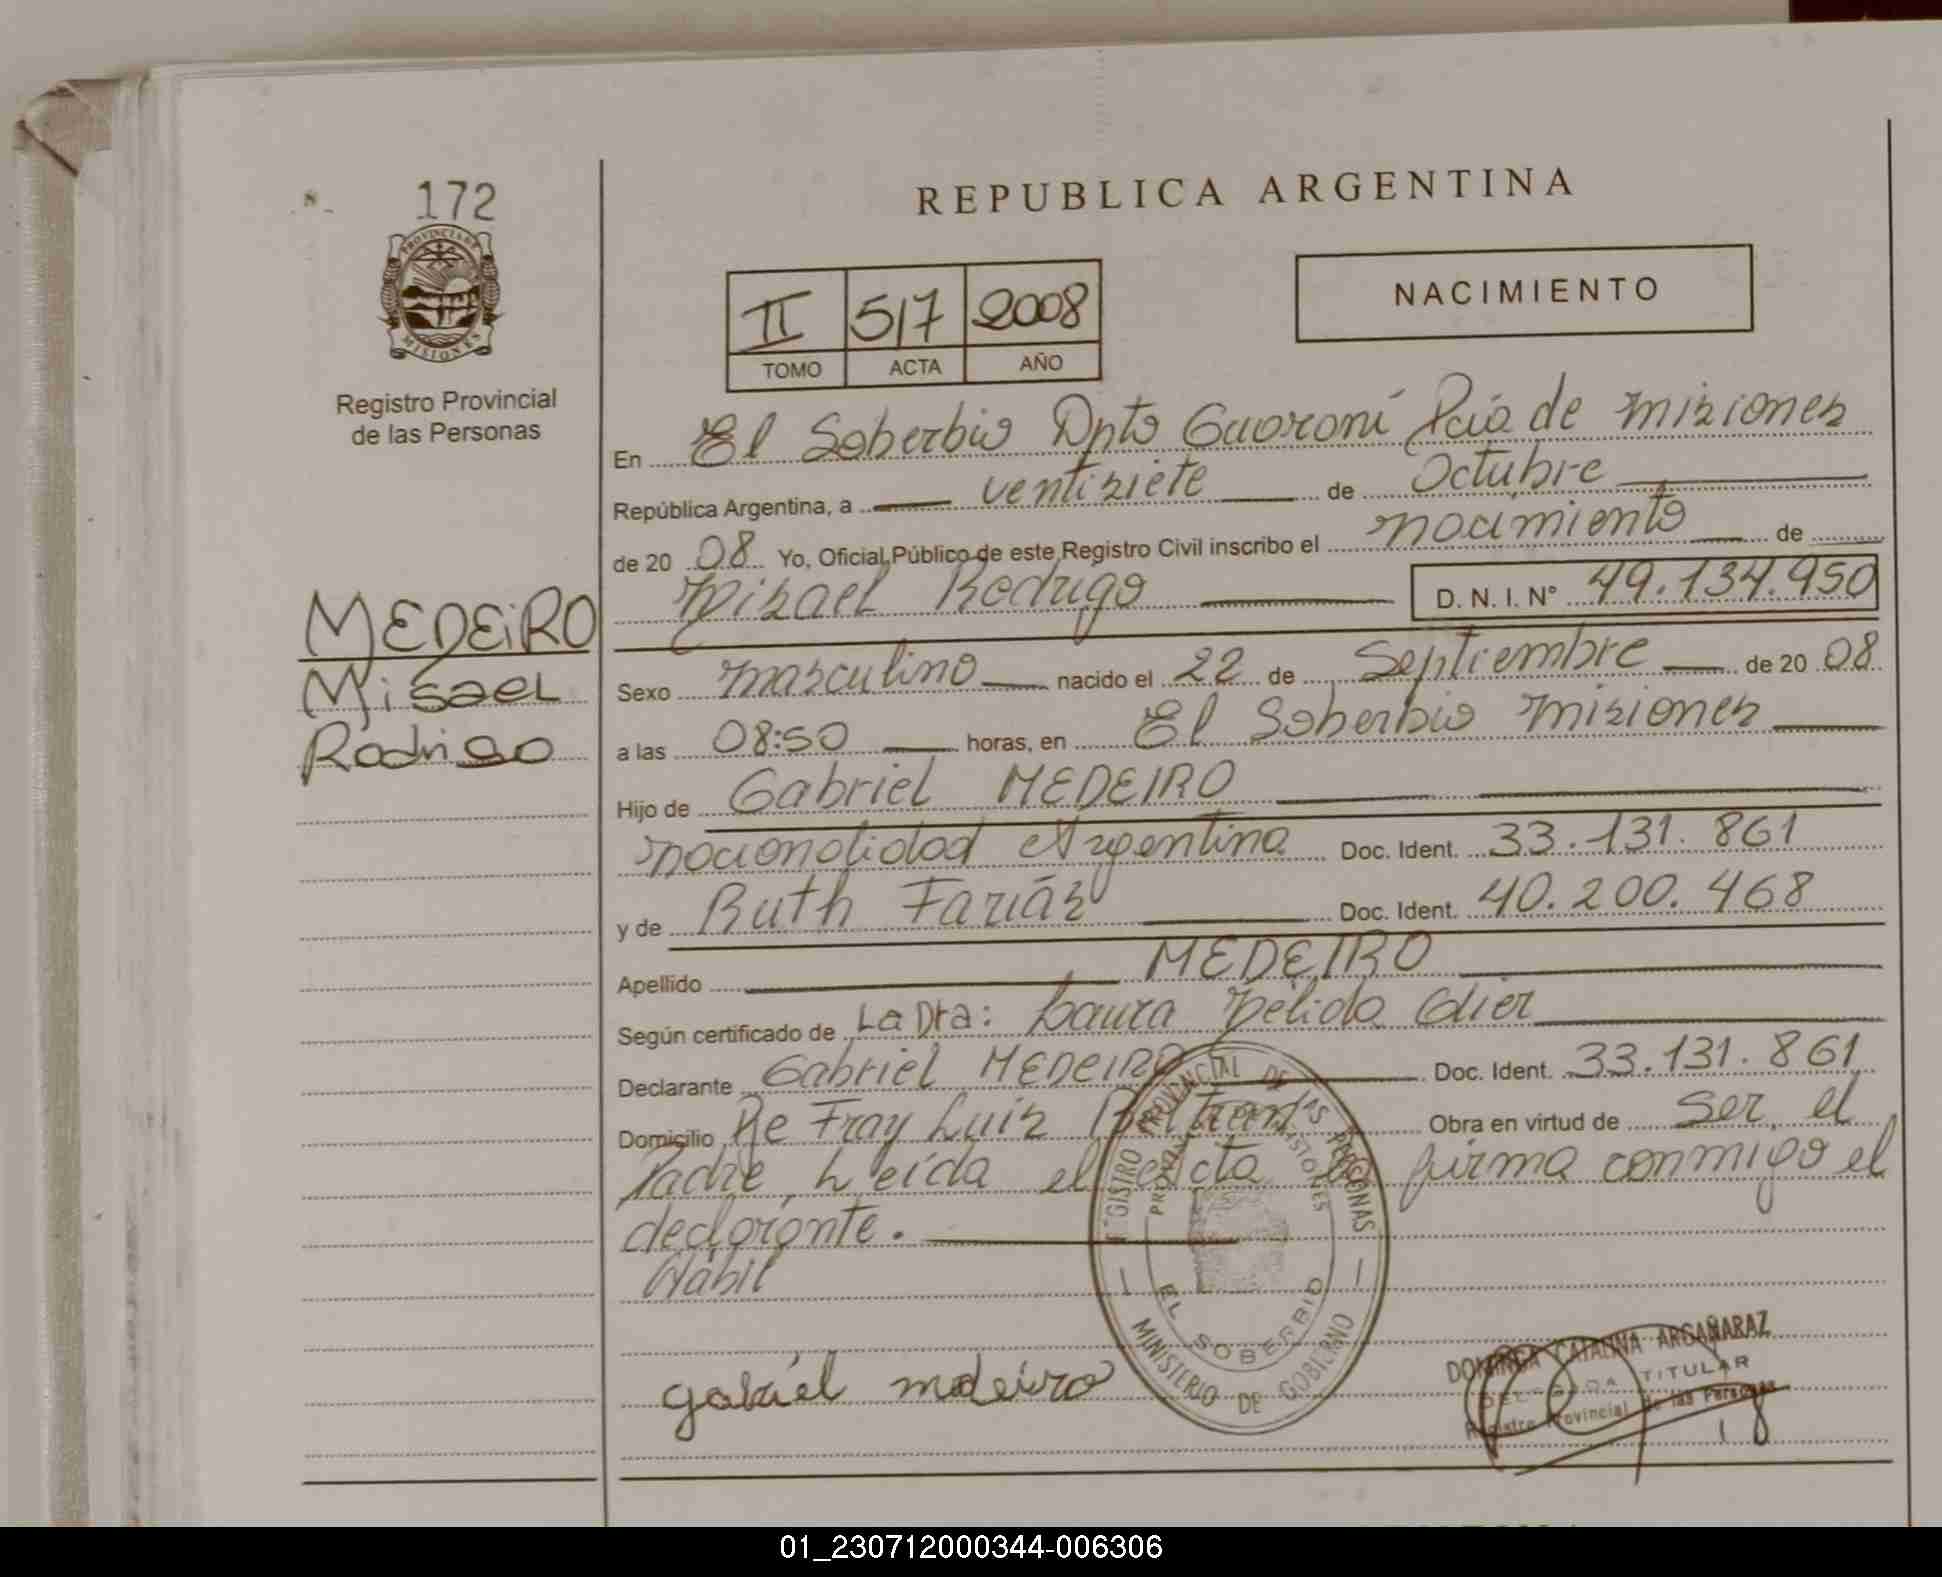 172
PROVINCIA DE
MISIONES
Registro Provincial
de las Personas
MEDEIRO
Misael
Rodrigo
REPUBLICA ARGENTINA
II 517 2008
TOMO ACTA AÑO
NACIMIENTO
En El Soberbio Dpto Guaraní Pcia de misiones
República Argentina, a ventisiete de Octubre
de 20 08 Yo, Oficial Público de este Registro Civil inscribo el nacimiento de
Misael Rodrigo D. N. I. Nº 49.134.950
Sexo masculino nacido el 22 de Septiembre de 20 08
a las 08:50 horas, en El Soberbio misiones
Hijo de Gabriel MEDEIRO
nacionalidad Argentina Doc. Ident. 33.131.861
y de Ruth Farías Doc. Ident. 40.200.468
Apellido MEDEIRO
Según certificado de La Dra: Laura Nélida
Declarante Gabriel MEDEIRO Doc. Ident. 33.131.861
Domicilio Fray Luis Beltran Obra en virtud de ser el
Padre, Leída el acta firma conmigo el
declarante.
Hábil
REGISTRO PROVINCIAL DE LAS PERSONAS
PROVINCIA DE MISIONES
EL SOBERBIO
MINISTERIO DE GOBIERNO
gabriel medeiro
DOMINGA CATALINA ARGAÑARAZ
DELEGADA TITULAR
Registro Provincial de las Personas
01_230712000344-006306